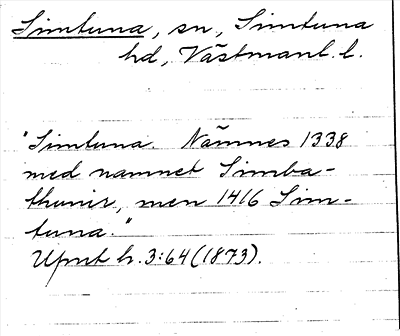 Simtuna, sn, Simtuna
hd, Västmanl. l.
"Simtuna. Nämnes 1338
med namnet Simba-
thunir, men 1416 Sim-
tuna."
Upmt h. 3:64 (1873).